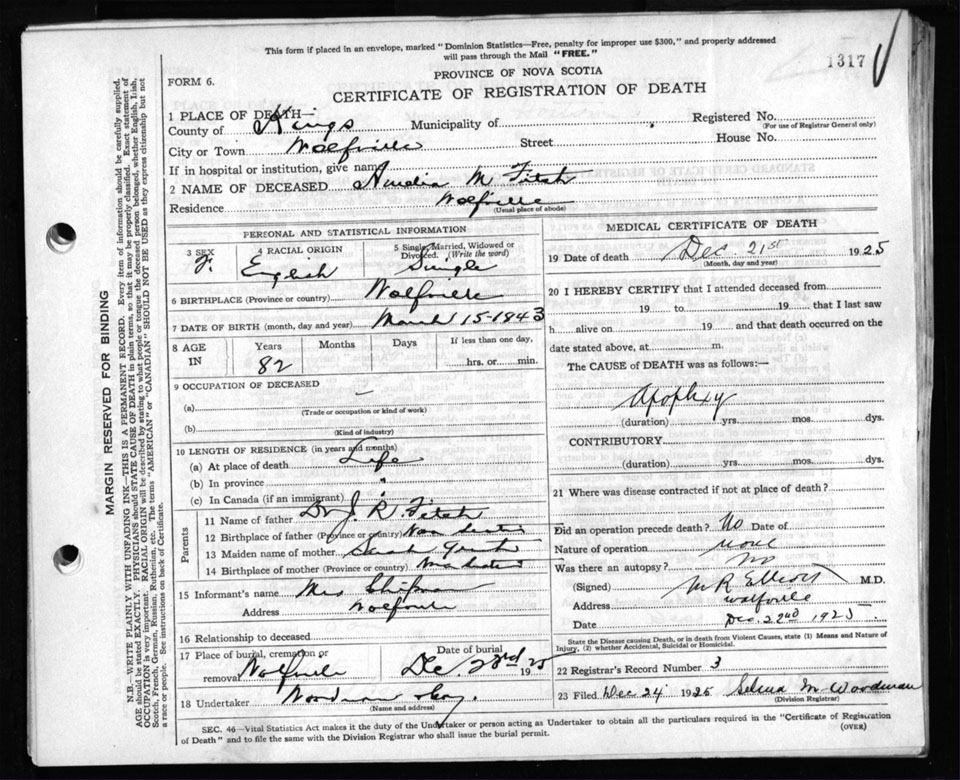 This form if placed in an envelope, marked "Dominion Statistics—Free, penalty for improper use $300," and properly addressed
will pass through the Mail "FREE."
1317
PROVINCE OF NOVA SCOTIA
FORM 6.
CERTIFICATE OF REGISTRATION OF DEATH
1 PLACE OF DEATH—
County of Kings Municipality of Registered No.
(For use of Registrar General only)
City or Town Wolfville Street House No.
If in hospital or institution, give name
2 NAME OF DECEASED M Fitch
Residence Wolfville
(Usual place of abode)
PERSONAL AND STATISTICAL INFORMATION
3 SEX F.
4 RACIAL ORIGIN English
5 Single, Married, Widowed or Divorced. (Write the word) Single
6 BIRTHPLACE (Province or country) Wolfville
7 DATE OF BIRTH (month, day and year) March 15-1843
8 AGE IN Years 82 Months Days If less than one day, hrs. or min.
9 OCCUPATION OF DECEASED —
(a)
(Trade or occupation or kind of work)
(b)
(Kind of industry)
10 LENGTH OF RESIDENCE (in years and months)
(a) At place of death Life
(b) In province "
(c) In Canada (if an immigrant)
Parents
11 Name of father Dr J. R. Fitch
12 Birthplace of father (Province or country) Nova Scotia
13 Maiden name of mother Sarah
14 Birthplace of mother (Province or country) Nova Scotia
15 Informant's name Mrs Chipman
Address Wolfville
16 Relationship to deceased
17 Place of burial, cremation or removal Wolfville Date of burial Dec. 23rd 1925
18 Undertaker Woodman
(Name and address)
MEDICAL CERTIFICATE OF DEATH
19 Date of death Dec 21st 1925
(Month, day and year)
20 I HEREBY CERTIFY that I attended deceased from
19 to 19 that I last saw
h alive on 19 and that death occurred on the
date stated above, at m.
The CAUSE of DEATH was as follows:—
Apoplexy
(duration) yrs. mos. dys.
CONTRIBUTORY
(duration) yrs. mos. dys.
21 Where was disease contracted if not at place of death?
Did an operation precede death? No Date of
Nature of operation none
Was there an autopsy? no
(Signed) M R Elliott M.D.
Address Wolfville
Date Dec. 22nd 1925
State the Disease causing Death, or in death from Violent Causes, state (1) Means and Nature of
Injury, (2) whether Accidental, Suicidal or Homicidal.
22 Registrar's Record Number 3
23 Filed Dec 24 1925 Selma M Woodman
(Division Registrar)
SEC. 46—Vital Statistics Act makes it the duty of the Undertaker or person acting as Undertaker to obtain all the particulars required in the "Certificate of Registration
of Death" and to file the same with the Division Registrar who shall issue the burial permit.
(OVER)
MARGIN RESERVED FOR BINDING
N.B.—WRITE PLAINLY WITH UNFADING INK—THIS IS A PERMANENT RECORD. Every item of information should be carefully supplied.
AGE should be stated EXACTLY. PHYSICIANS should STATE CAUSE OF DEATH in plain terms, so that it may be properly classified. Exact statement of
OCCUPATION is very important. RACIAL ORIGIN will be described by stating to what people or tongue the deceased person belonged, whether English, Irish,
Scotch, French, German, Russian, Ruthenian, etc. The terms "AMERICAN" or "CANADIAN" SHOULD NOT BE USED as they express citizenship but not
a race or people. See instructions on back of Certificate.